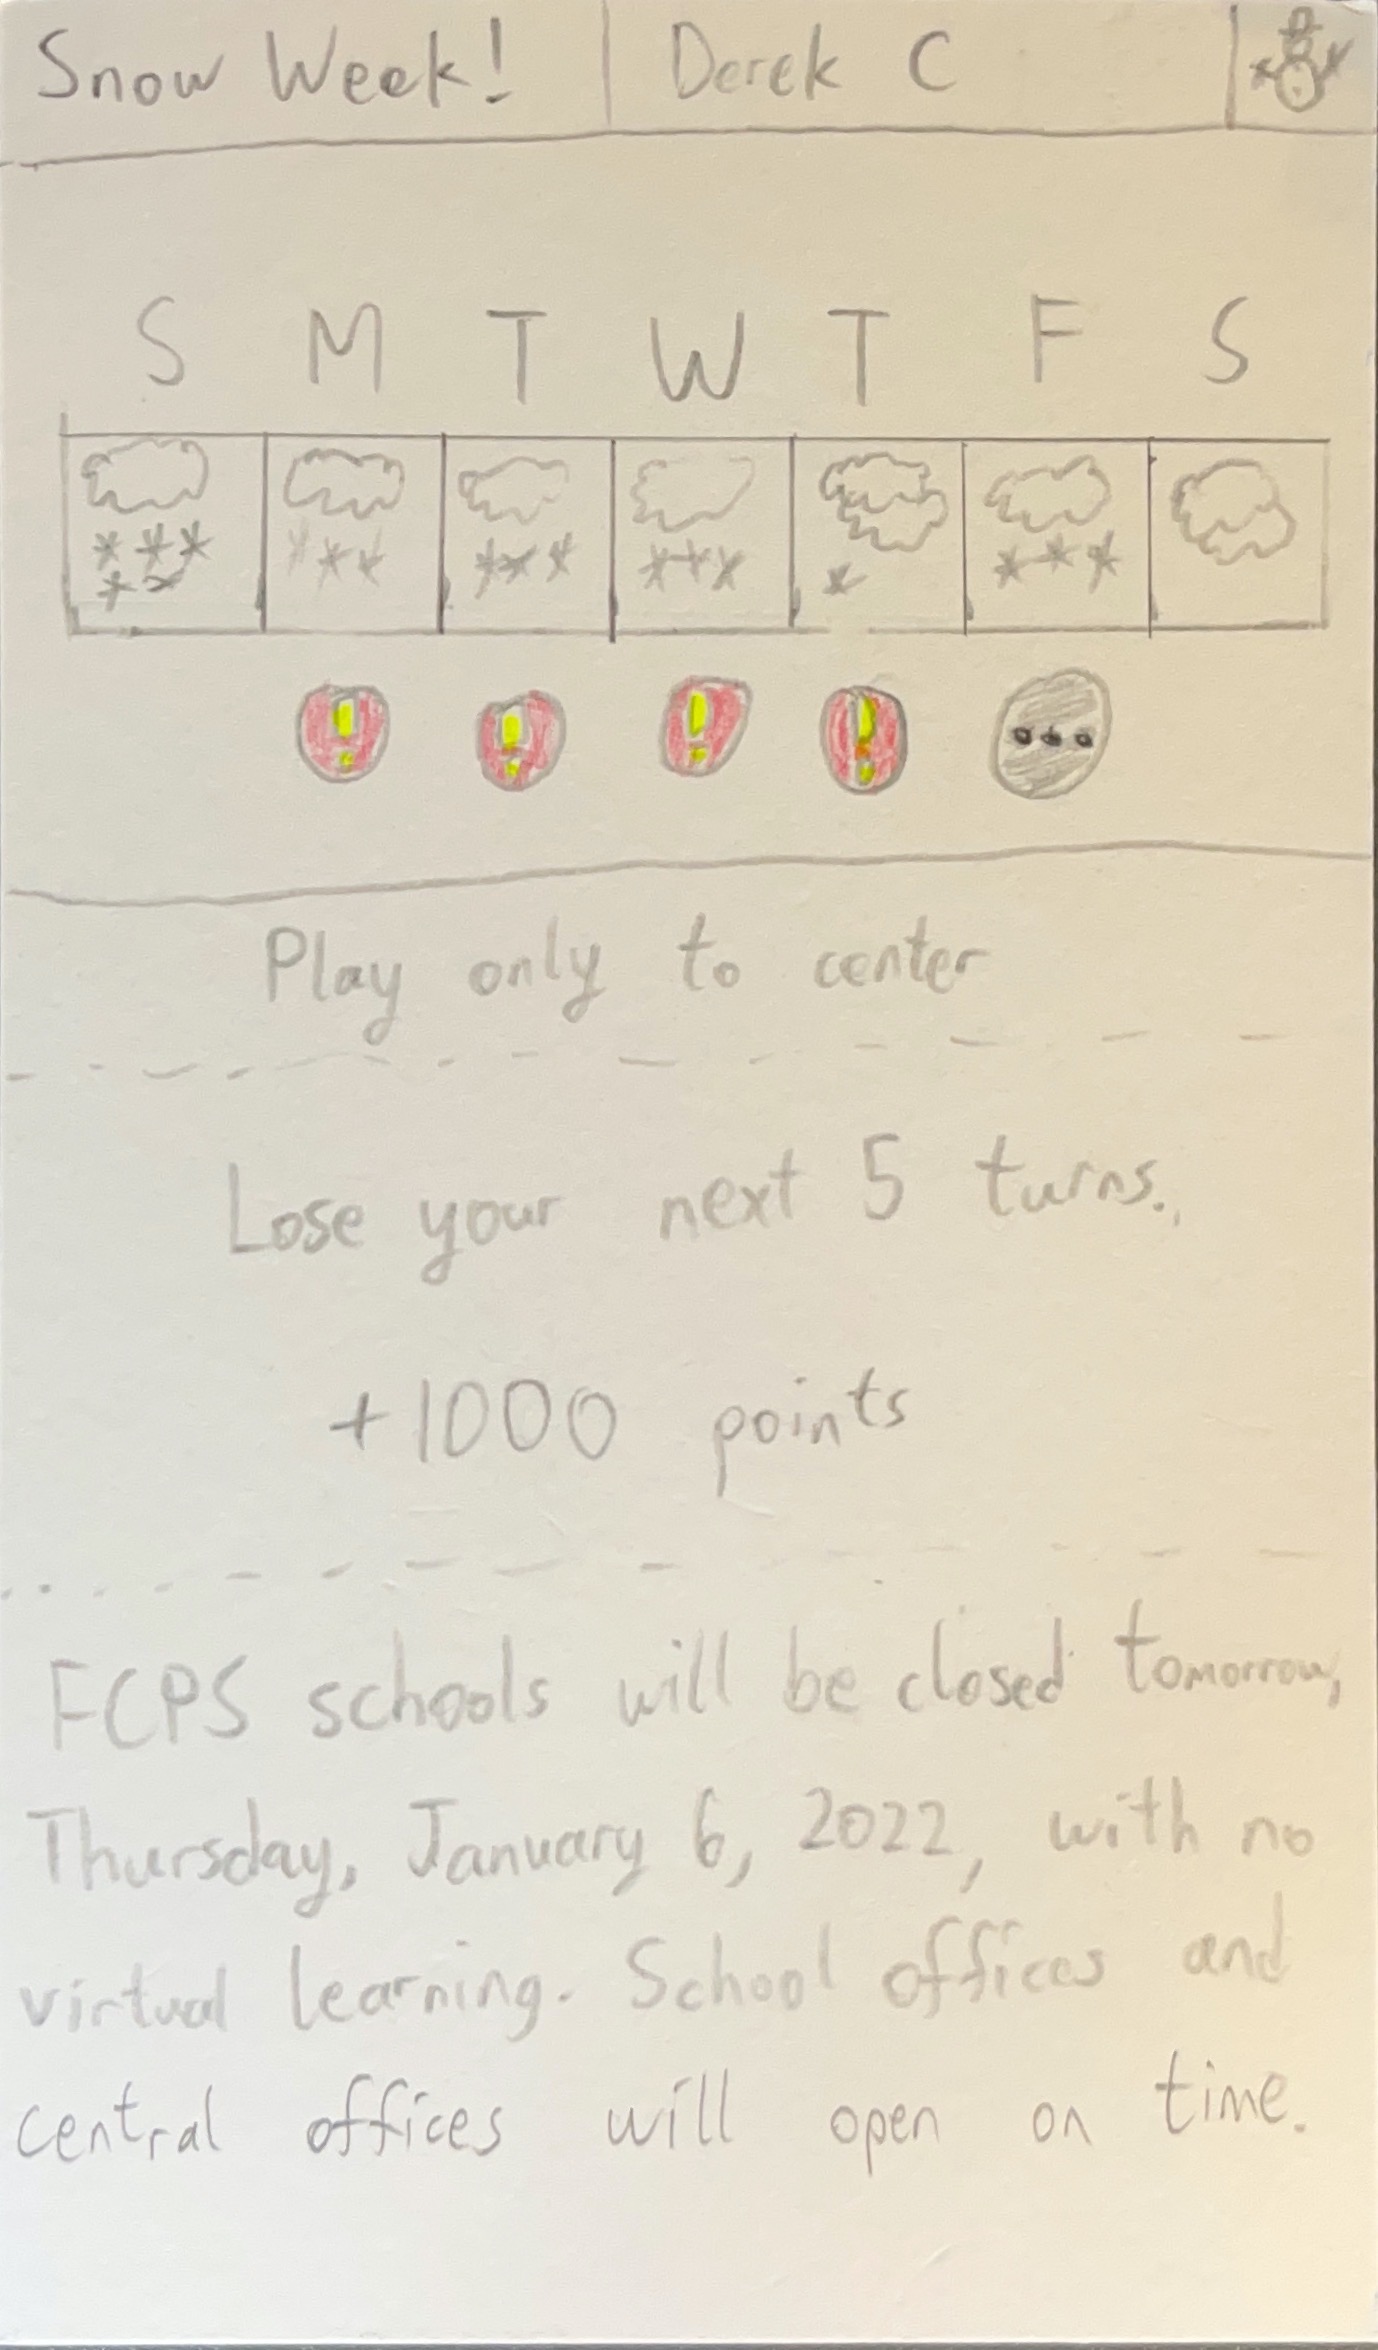 Snow Week! Derek C
S M T W T F S
! ! ! ! ...
Play only to center
Lose your next 5 turns.
+1000 points
FCPS schools will be closed tomorrow,
Thursday, January 6, 2022, with no
virtual learning. School offices and
central offices will open on time.